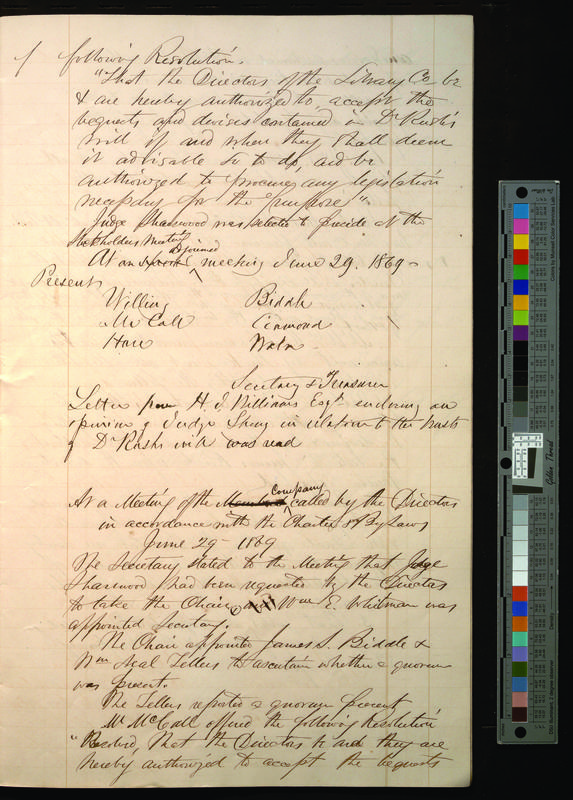 following Resolution.
"That the Directors of the Library Co be
& are hereby authorized to accept the
bequests and devises contained in Dr Rush's
will if and when they shall deem
it advisable so to do, and be
authorized to procure any legislation
necessary for the purpose"
Judge Sharswood was selected to preside at the
Stockholders Meeting
At an adjourned meeting June 29. 1869
Present
Willing Biddle
McCall
Hare
Secretary & Treasurer
Letter from H. J. Williams Esqr enclosing an
opinion of Judge in relation to the trusts
of Dr Rush's will was read
At a Meeting of the Company called by the Directors
in accordance with the Charter & By Laws
June 29 1869
The Secretary stated to the Meeting that Judge
Sharswood had been requested by the Directors
to take the Chair Wm E. Whitman was
appointed Secretary.
The Chair appointed James S. Biddle &
Wm Tellers to ascertain whether a quorum
was present.
The Tellers reported a quorum present
Mr McCall offered the following Resolution
"Resolved, That the Directors be and they are
hereby authorized to accept the bequests